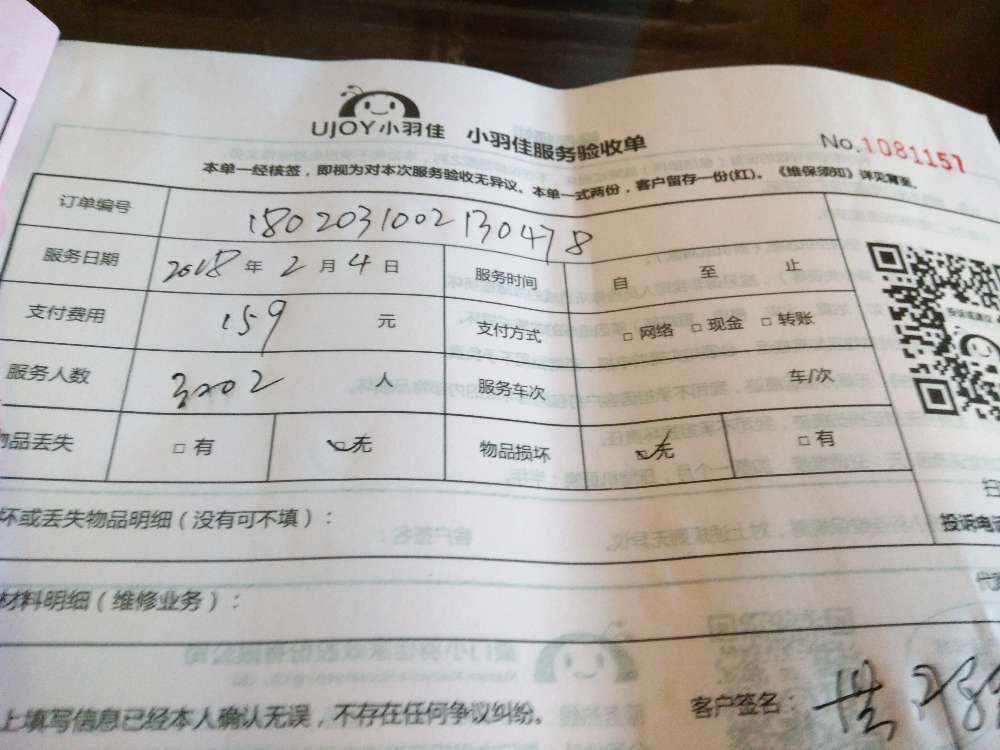 UJOY小羽佳 小羽佳服务验收单 No.1081157
本单一经核签，即视为对本次服务验收无异议。本单一式两份，客户留存一份(红)。《维保须知》详见背面。
订单编号 1802031002130478
服务日期 2018 年 2 月 4 日 服务时间 自 至 止
支付费用 159 元 支付方式 □ 网络 □ 现金 □ 转账
服务人数 人 服务车次 车/次
物品丢失 □ 有 □无 物品损坏 □无 □ 有
坏或丢失物品明细（没有可不填）：
投诉电
材料明细（维修业务）：
上填写信息已经本人确认无误，不存在任何争议纠纷。 客户签名：